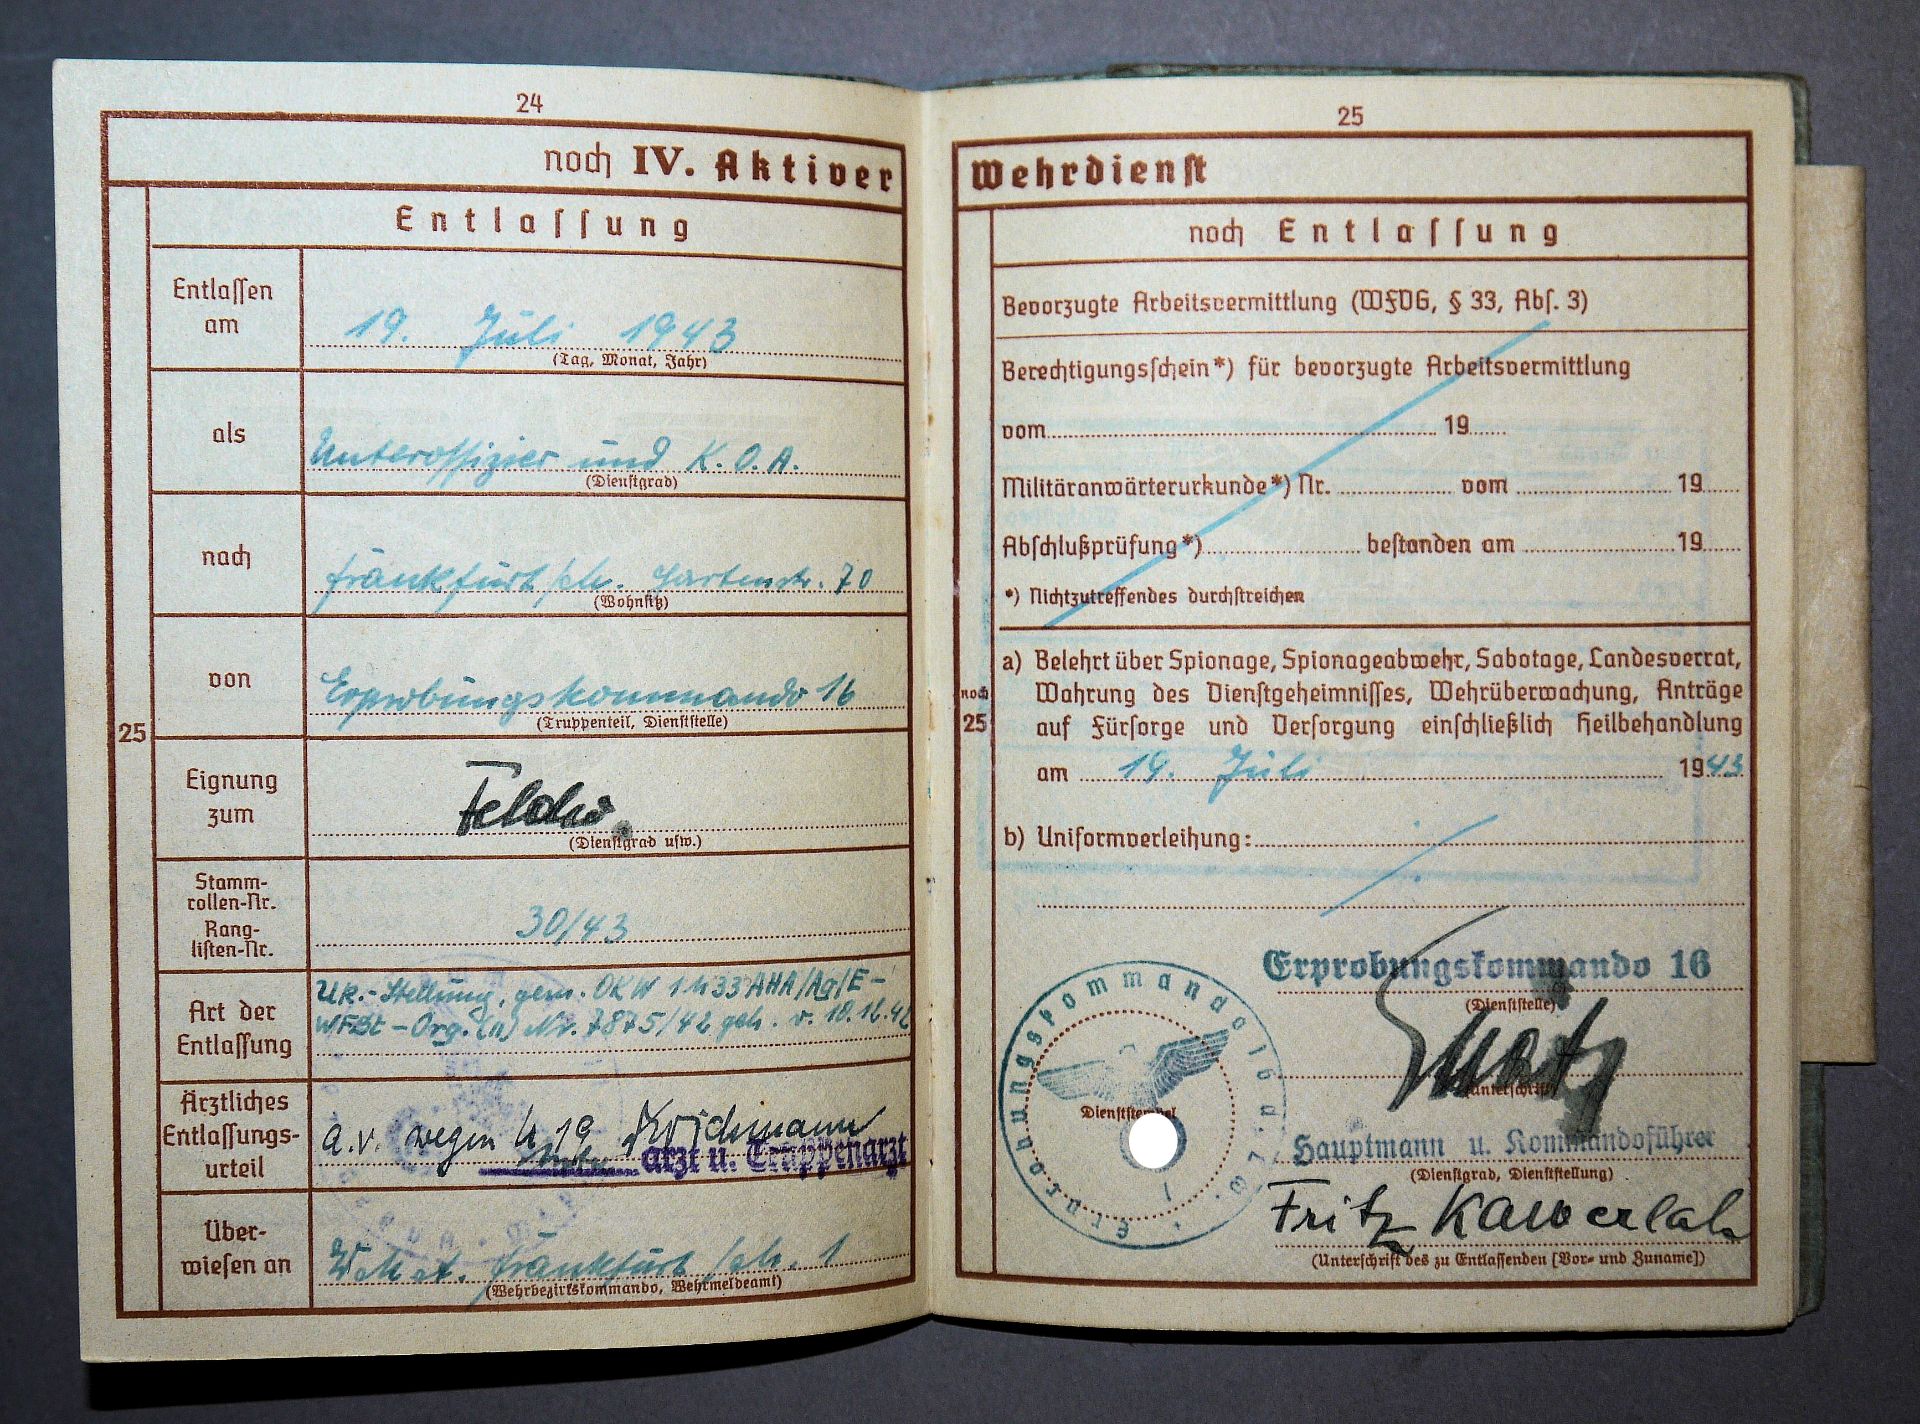 24
noch IV. Aktiver
Entlassung
Entlassen am
19. Juli 1943
(Tag, Monat, Jahr)
als
Unteroffizier und K.O.A.
(Dienstgrad)
nach
Frankfurt/M. Gartenstr. 70
(Wohnsitz)
von
Erprobungskommando 16
(Truppenteil, Dienststelle)
25
Eignung zum
(Dienstgrad usw.)
Stamm-
rollen-Nr.
Rang-
listen-Nr.
30/43
Art der
Entlassung
Uk.-Stellung, gem. OKW AHA/Ag/E-
WFSt-Org. (II) Nr. 7875/42 geh. v.
Ärztliches
Entlassungs-
urteil
a.v. wegen
arzt u. Truppenarzt
Über-
wiesen an
Frankfurt/M. 1
(Wehrbezirkskommando, Wehrmeldeamt)
25
Wehrdienst
noch Entlassung
Bevorzugte Arbeitsvermittlung (WFVG, § 33, Abs. 3)
Berechtigungsschein*) für bevorzugte Arbeitsvermittlung
vom 19
Militäranwärterurkunde*) Nr. vom 19
Abschlußprüfung*) bestanden am 19
*) Nichtzutreffendes durchstreichen
noch
25
a) Belehrt über Spionage, Spionageabwehr, Sabotage, Landesverrat,
Wahrung des Dienstgeheimnisses, Wehrüberwachung, Anträge
auf Fürsorge und Versorgung einschließlich Heilbehandlung
am 19. Juli 1943
b) Uniformverleihung:
Erprobungskommando 16
(Dienststelle)
Erprobungskommando 16 d. Lw.
Dienststempel
(Unterschrift)
Hauptmann u. Kommandoführer
(Dienstgrad, Dienststellung)
Fritz Kawerlah
(Unterschrift des zu Entlassenden [Vor- und Zuname])